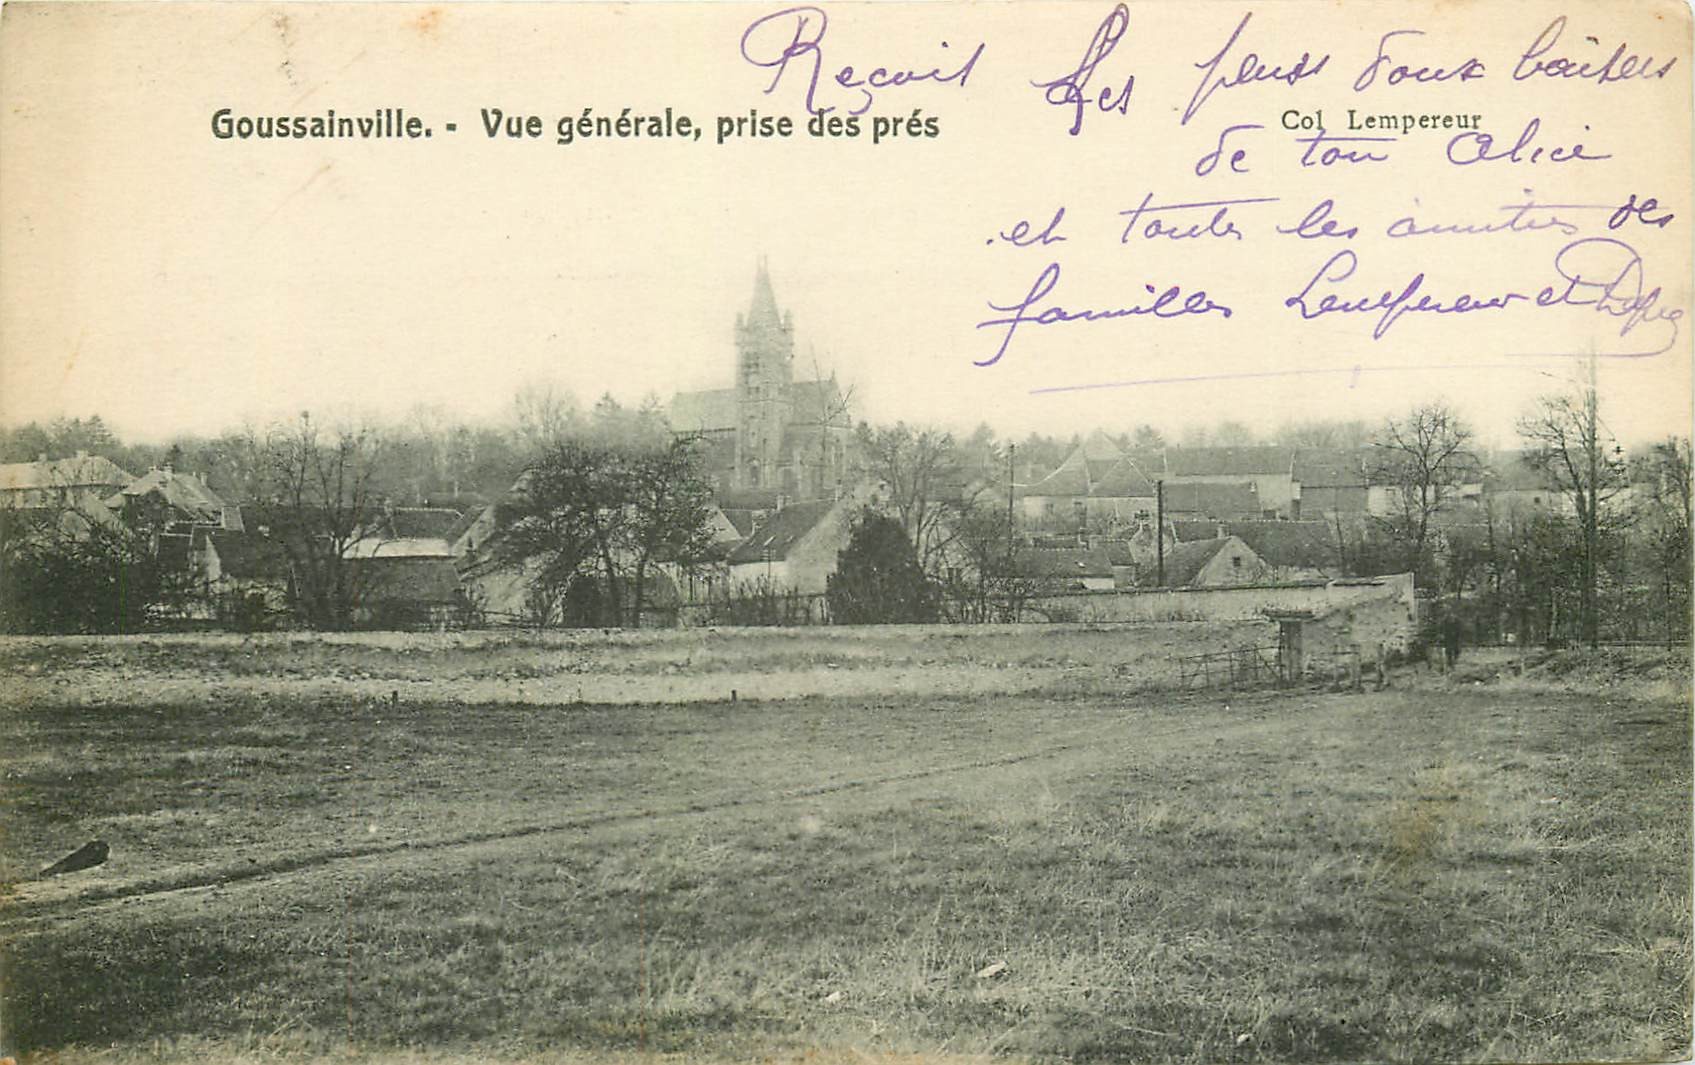 Reçoit Les plus doux baisers
Goussainville. - Vue générale, prise des prés
Col Lempereur
de ton Alice
et toutes les amitiés des
familles Lempereur et